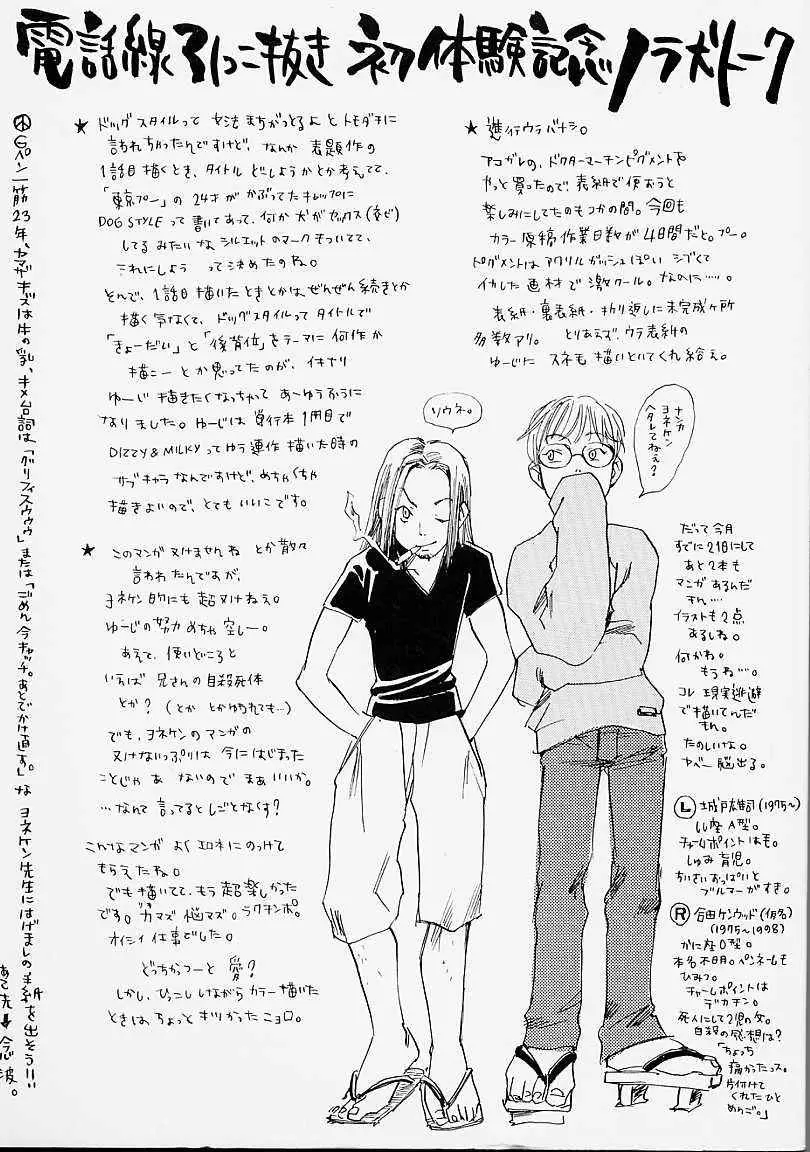 電話線引っこ抜き 初体験記念ノラ犬トーク
★ ドッグスタイルって 文法まちがっとるよとトモダチに
言われちゃったんですけど、なんか 表題作の
1話目描くとき、タイトル どしようかとか考えてて、
「東京プー」の24才がかぶってたキャップに
DOG STYLEって書いてあって、何か犬がセックス(交ビ)
してるみたいなシルエットのマークもついてて、
これにしよう って決めたのね。
とんで、1話目描いたときとかは、ぜんぜん続きとか
描く気なくて、ドッグスタイルってタイトルで
「きょーだい」と「後背位」をテーマに何作か
描こーとか思ってたのが、イキナリ
ゆーじ描きたくなっちゃって あーゆうふうに
なりました。ゆーじは単行本1冊目で
DIZZY&MILKYってゆう連作描いた時の
サブキャラなんですけど、めちゃくちゃ
描きよいので、とてもいいこです。
★ このマンガ ヌけませんね とか散々
言われたんですが、
ヨネケン的にも超ヌけねえ。
ゆーじの努力めちゃ空しー。
あえて、使いどころと
いえば 兄さんの自殺死体
とか?(とか とかゆられても…)
でも、ヨネケンのマンガの
ヌけないっぷりは 今にはじまった
ことじゃあ ないので まあいいか。
…なんて言ってるとしごとなくす?
こんなマンガ よくエロネにのっけて
もらえたね。
でも描いてて、もう超楽しかった
です。ガマズ悩マズ。ラクチンポ。
オイシイ仕事でした。
どっちかつーと 愛?
しかし、ひっこししながらカラー描いた
ときは、ちょっとキツかったニョロ。
★ 進行ウラバナシ。
アコガレの、ドクターマーチンピグメントを
やっと買ったので、表紙で使おうと
楽しみにしてたのもつかの間。今回も
カラー原稿作業日数が4日間だと。プー。
ピグメントはアクリルガッシュぽい シブくて
イカした画材で激クール。なのに……。
表紙・裏表紙・折り返しに未完成ヶ所
多数アリ。 とりあえず、ウラ表紙の
ゆーじに スネ毛描いといてくれ給え。
ソウネ。
ナンカ
ヨネケン
ヘタレてねえ?
だって今月
すでに21日にして
あと2本も
マンガあるんだ
もん…
イラストも2点
あるしね。
何かね。
もうね…。
コレ 現実逃避
で描いてんだ
もん。
たのしいな。
ヤベー 脳出る。
Ⓛ 土城戸雄司(1975~)
しし座A型。
チャームポイントはモ。
しゅみ育児。
ちいさいおっぱいと
ブルマーがすき。
Ⓡ 合田ケンウッド(仮名)
(1975~1998)
かに座O型。
本名不明。ペンネームも
ひみつ。
チャームポイントは
デカチン。
死人にして2児の父。
自殺の感想は?
「ちょっち
痛かったっス。
片付けて
くれたひと
めんご。」
Gペン一筋23年、ヤマザキズは牛の乳、キメ台詞は、「グリフィスゥゥゥ」または「ごめん今キャッチ。あとでかけ直す。」な ヨネケン先生にはげましの手紙を出そう!!
あて先↓念波。